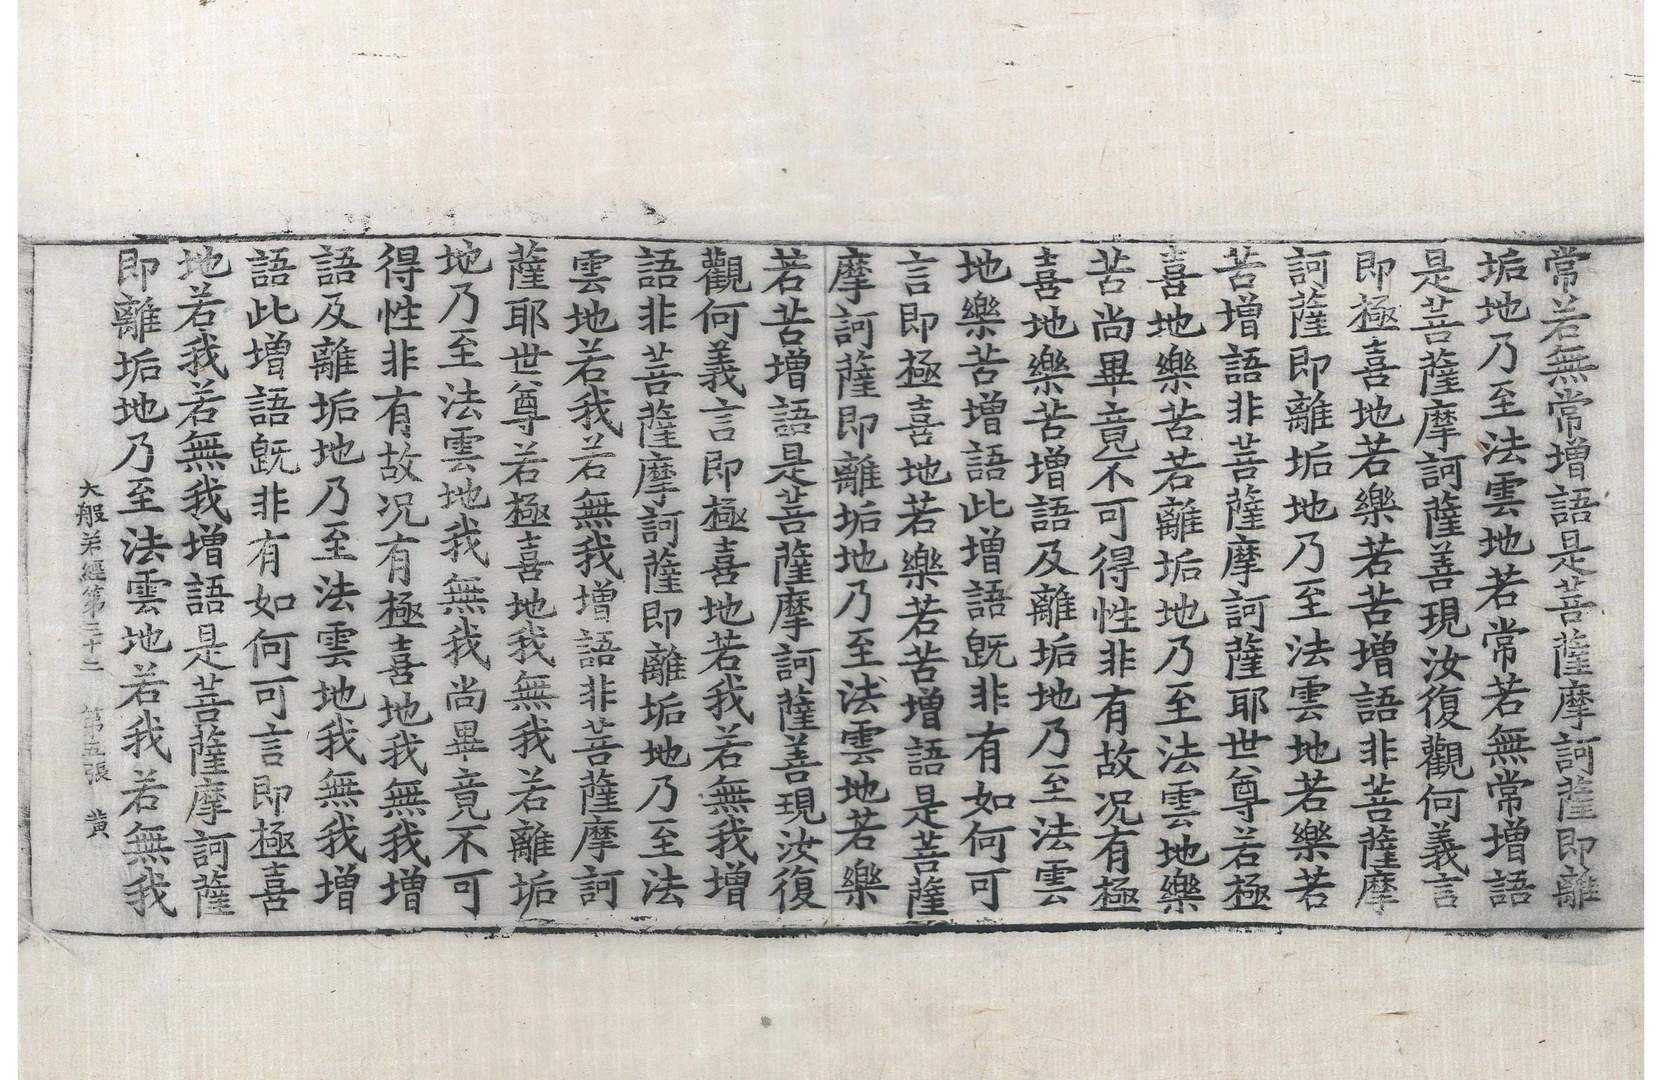 常若無常增語是菩薩摩訶薩即離
垢地乃至法雲地若常若無常增語
是菩薩摩訶薩善現汝復觀何義言
即極喜地若樂若苦增語非菩薩摩
訶薩即離垢地乃至法雲地若樂若
苦增語非菩薩摩訶薩耶世尊若極
喜地樂苦若離垢地乃至法雲地樂
苦尚畢竟不可得性非有故況有極
喜地樂苦增語及離垢地乃至法雲
地樂苦增語此增語旣非有如何可
言即極喜地若樂若苦增語是菩薩
摩訶薩即離垢地乃至法雲地若樂
若苦增語是菩薩摩訶薩善現汝復
觀何義言即極喜地若我若無我增
語非菩薩摩訶薩即離垢地乃至法
雲地若我若無我增語非菩薩摩訶
薩耶世尊若極喜地我無我若離垢
地乃至法雲地我無我尚畢竟不可
得性非有故况有極喜地我無我增
語及離垢地乃至法雲地我無我增
語此增語旣非有如何可言即極喜
地若我若無我增語是菩薩摩訶薩
即離垢地乃至法雲地若我若無我
大般若經第三十二 第五張 黄